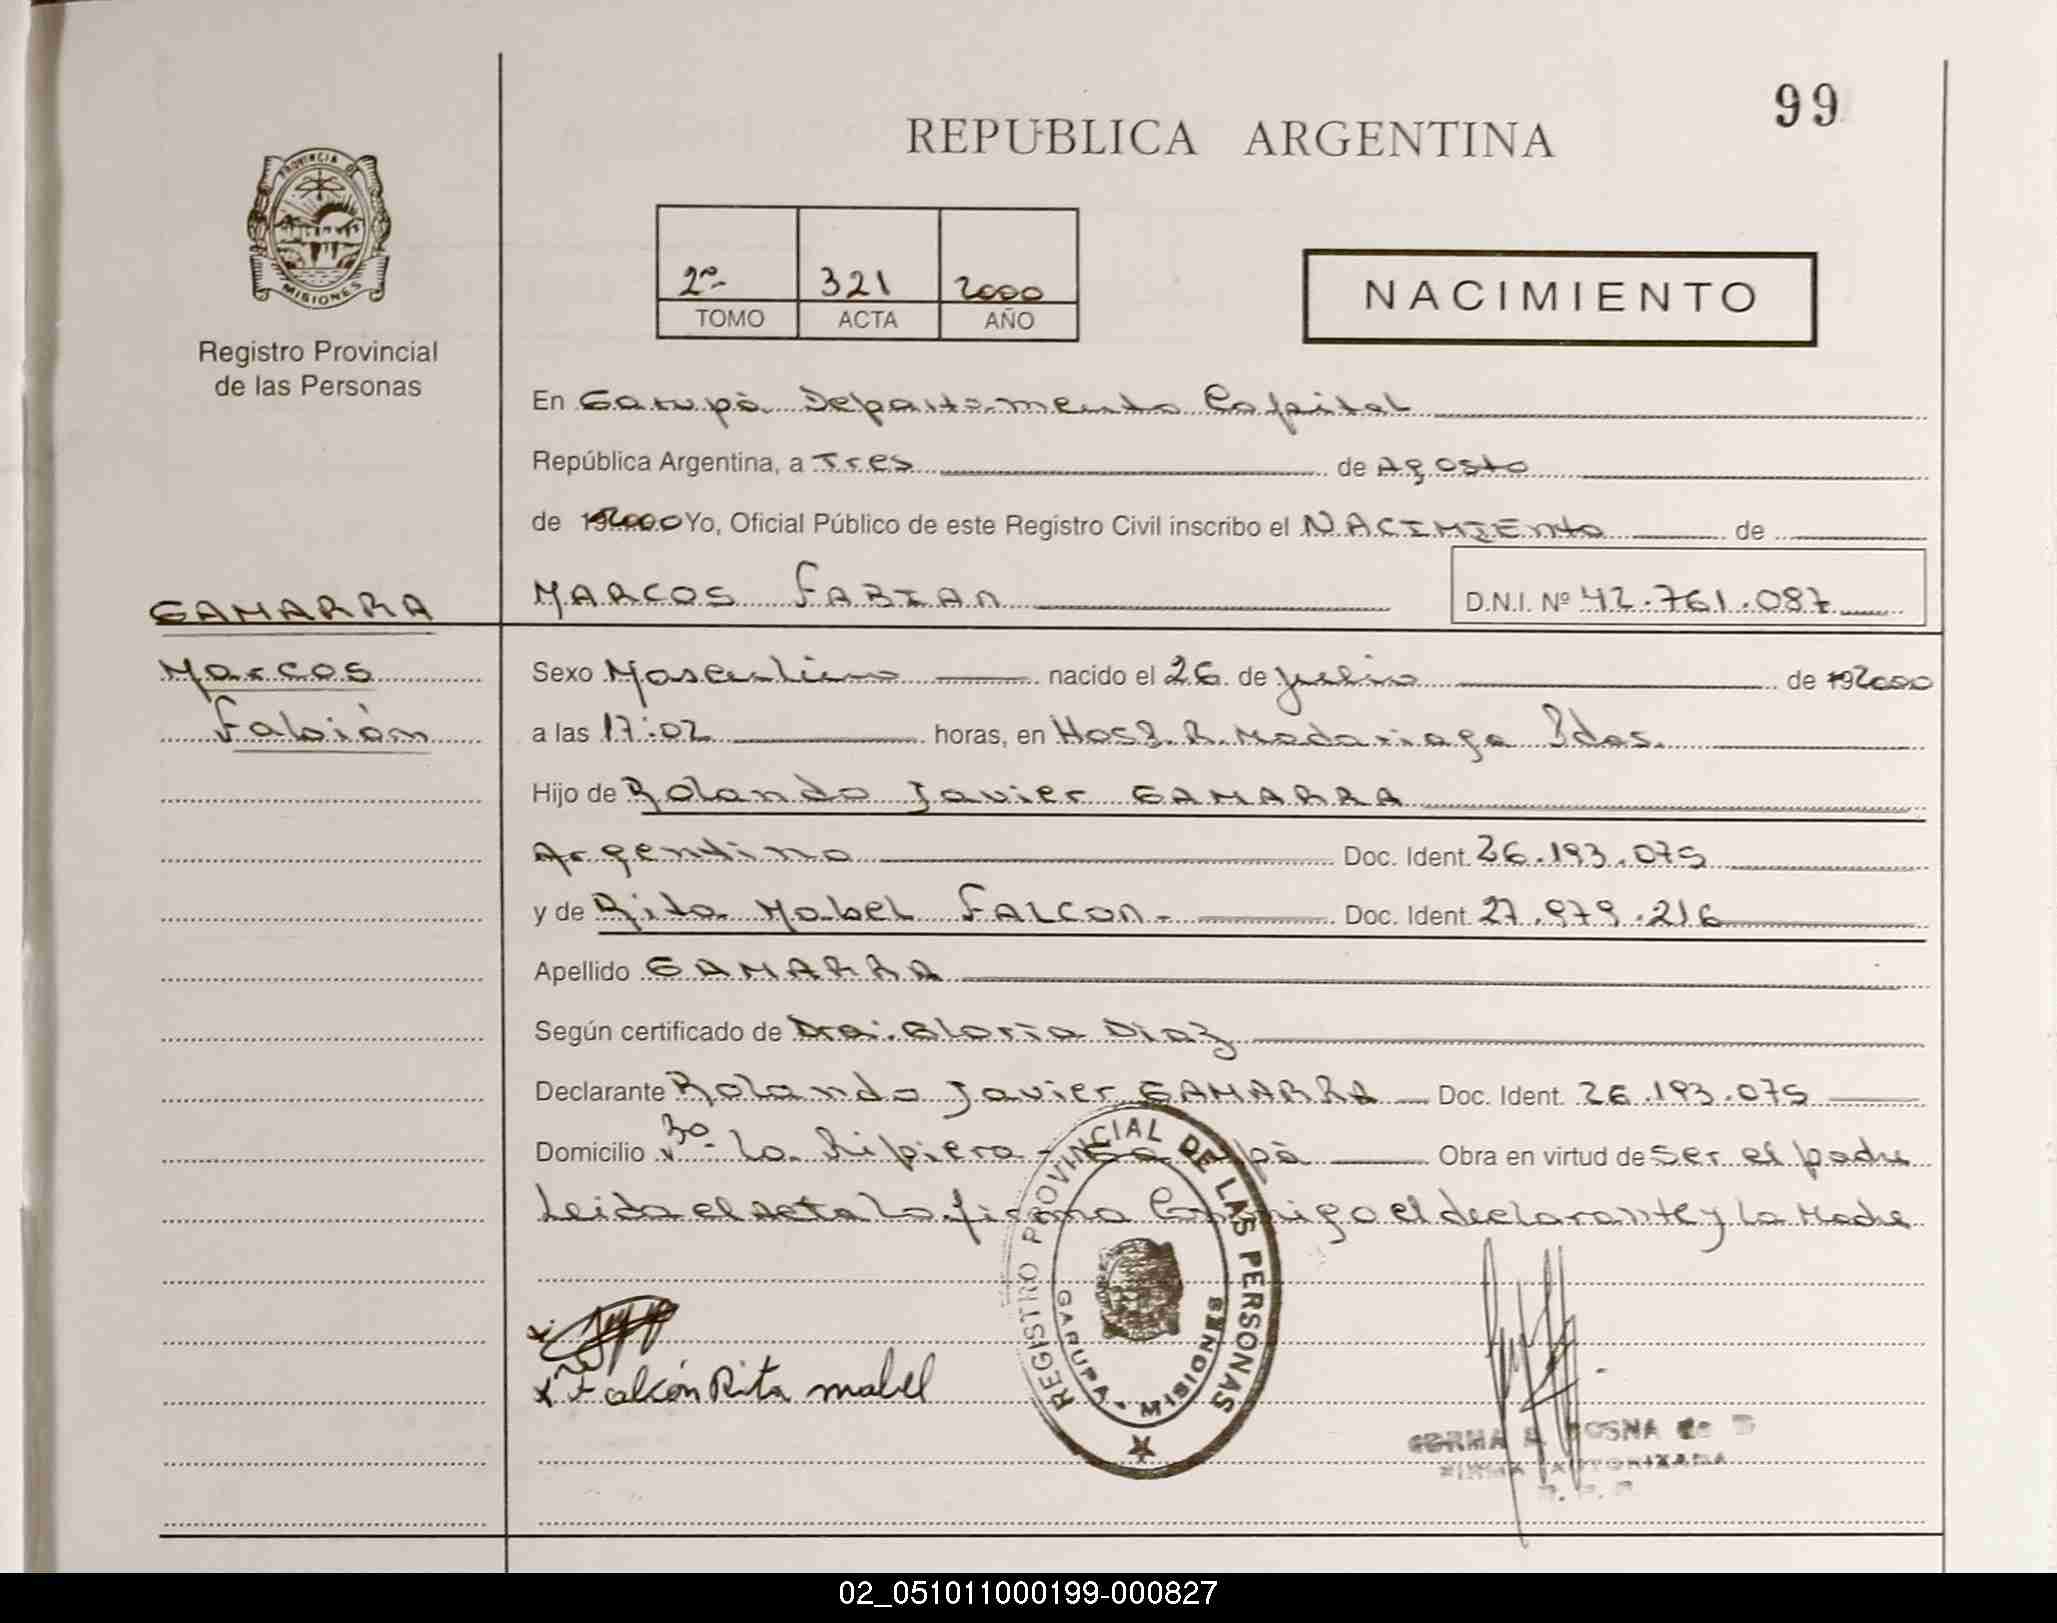 99
REPUBLICA ARGENTINA
PROVINCIA DE
MISIONES
Registro Provincial
de las Personas
2º- 321 2000
TOMO ACTA AÑO
NACIMIENTO
En Garupà Departamento Capital
República Argentina, a Tres de Agosto
de 192000 Yo, Oficial Público de este Registro Civil inscribo el NACIMIENto de
GAMARRA
MARCOS FABIAN D.N.I. Nº 42.761.087
Marcos
Fabián
Sexo Masculino nacido el 26 de Julio de 192000
a las 17:02 horas, en Hosp. R. Madariaga Pdas.
Hijo de Rolando Javier GAMARRA
Argentino Doc. Ident. 26.193.075
y de Rita Mabel FALCON.- Doc. Ident. 27.979.216
Apellido GAMARRA
Según certificado de Dra. Gloria Diaz
Declarante Rolando Javier GAMARRA Doc. Ident. 26.193.075
Domicilio Bº- La Ripiera - Garupà Obra en virtud de ser el padre
Leida el acta La firma Conmigo el declarante y La Madre
x
x Falcón Rita mabel
REGISTRO PROVINCIAL DE LAS PERSONAS
GARUPA - MISIONES
FIRMA AUTORIZADA
02_051011000199-000827